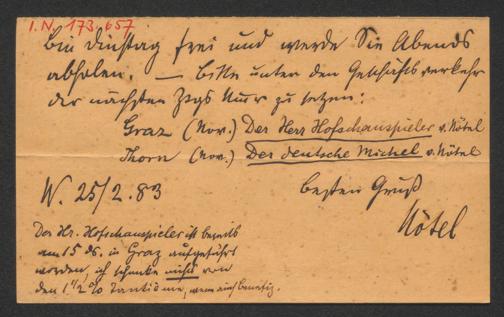 I.N. 173.657
bin Dinstag frei und werde Sie Abends
abholen. — Bitte unter den Geschäftsverkehr
der nächsten zu setzen:
Graz (Nov.) Der Herr Hofschauspieler v. Nötel
Thorn (Nov.) Der deutsche Michel v. Nötel
W. 25/2. 83
besten Gruß
Nötel
Der Hr. Hofschauspieler ist bereits
am 15 ds. in Graz aufgeführt
worden, ich schenke nichts von
den 1 1/2 % Tantième, wenn auch wenig.